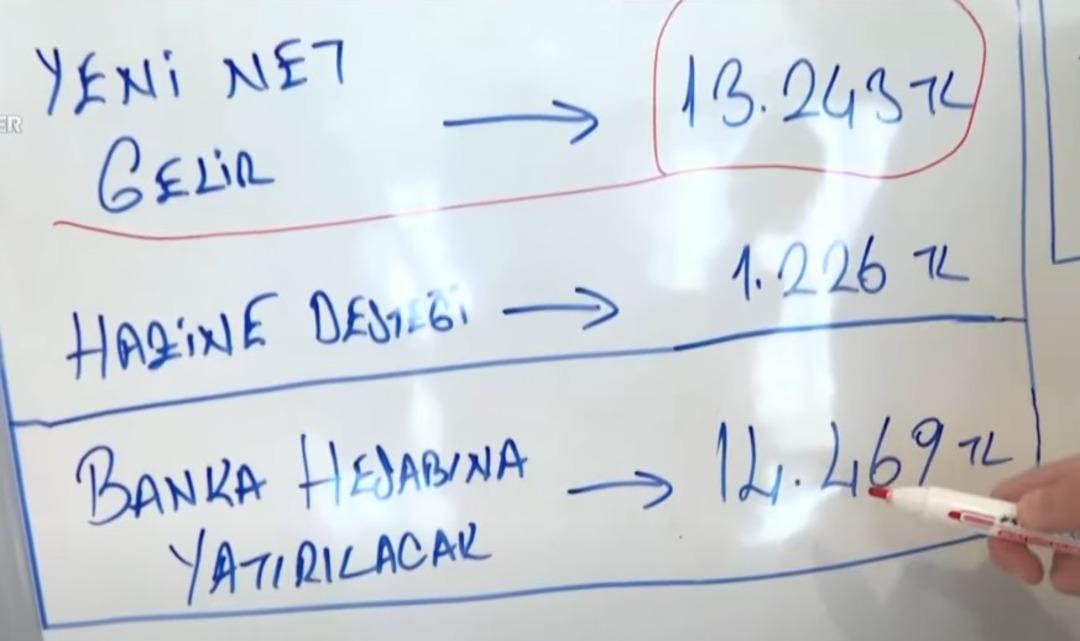 YENİ NET
GELİR → 13.243 TL
HAZİNE DESTEĞİ → 1.226 TL
BANKA HESABINA → 14.469 TL
YATIRILACAK
ER